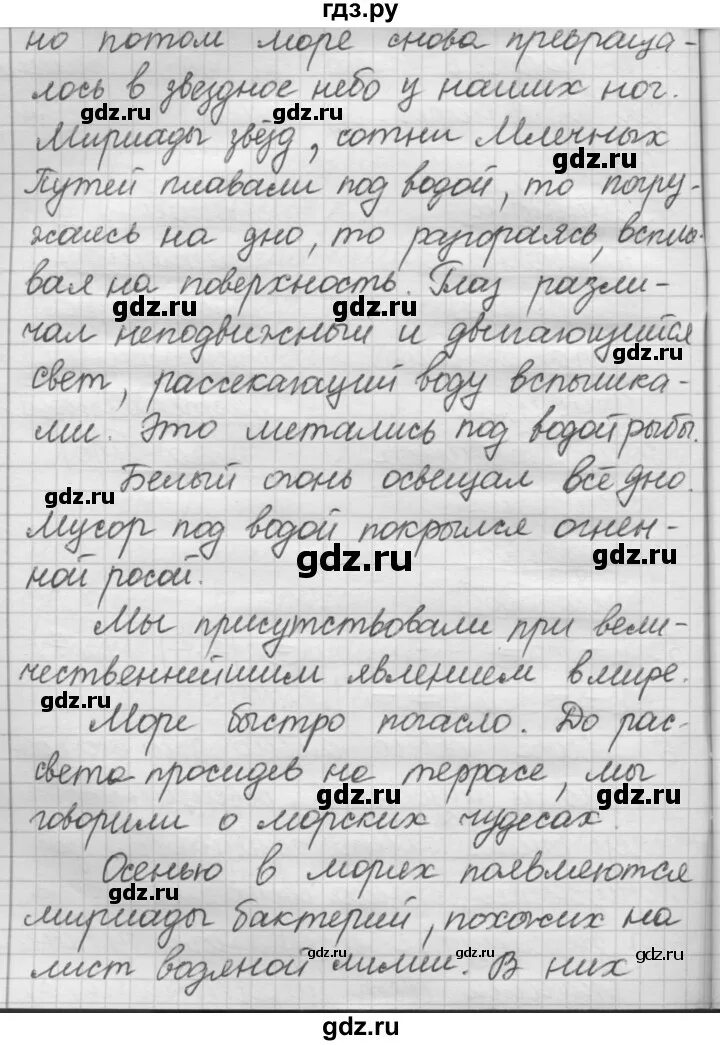 гдз.ру
но потом море снова превраща-
лось в звездное небо у наших ног.
gdz.ru
gdz.ru
Мириады звёзд, сотни Млечных
gdz.ru
Путей плавали под водой, то погру-
жаясь на дно, то разгораясь, всплы-
gdz.ru
вая на поверхность. Глаз разли-
gdz.ru
gdz.ru
чал неподвижный и двигающийся
gdz.ru
свет, рассекающий воду вспышка-
ми. Это метались под водой рыбы.
Белый огонь освещал всё дно.
gdz.ru
Мусор под водой покрылся огнен-
gdz.ru
ной росой.
Мы присутствовали при вели-
чественнейшим явлением в мире.
gdz.ru
Море быстро погасло. До рас-
света просидев на террасе, мы
gdz.ru
gdz.ru
говорили о морских чудесах.
Осенью в морях появляются
gdz.ru
мириады бактерий, похожих на
лист водяной лилии. В них
gdz.ru
gdz.ru
gdz.ru
gdz.ru